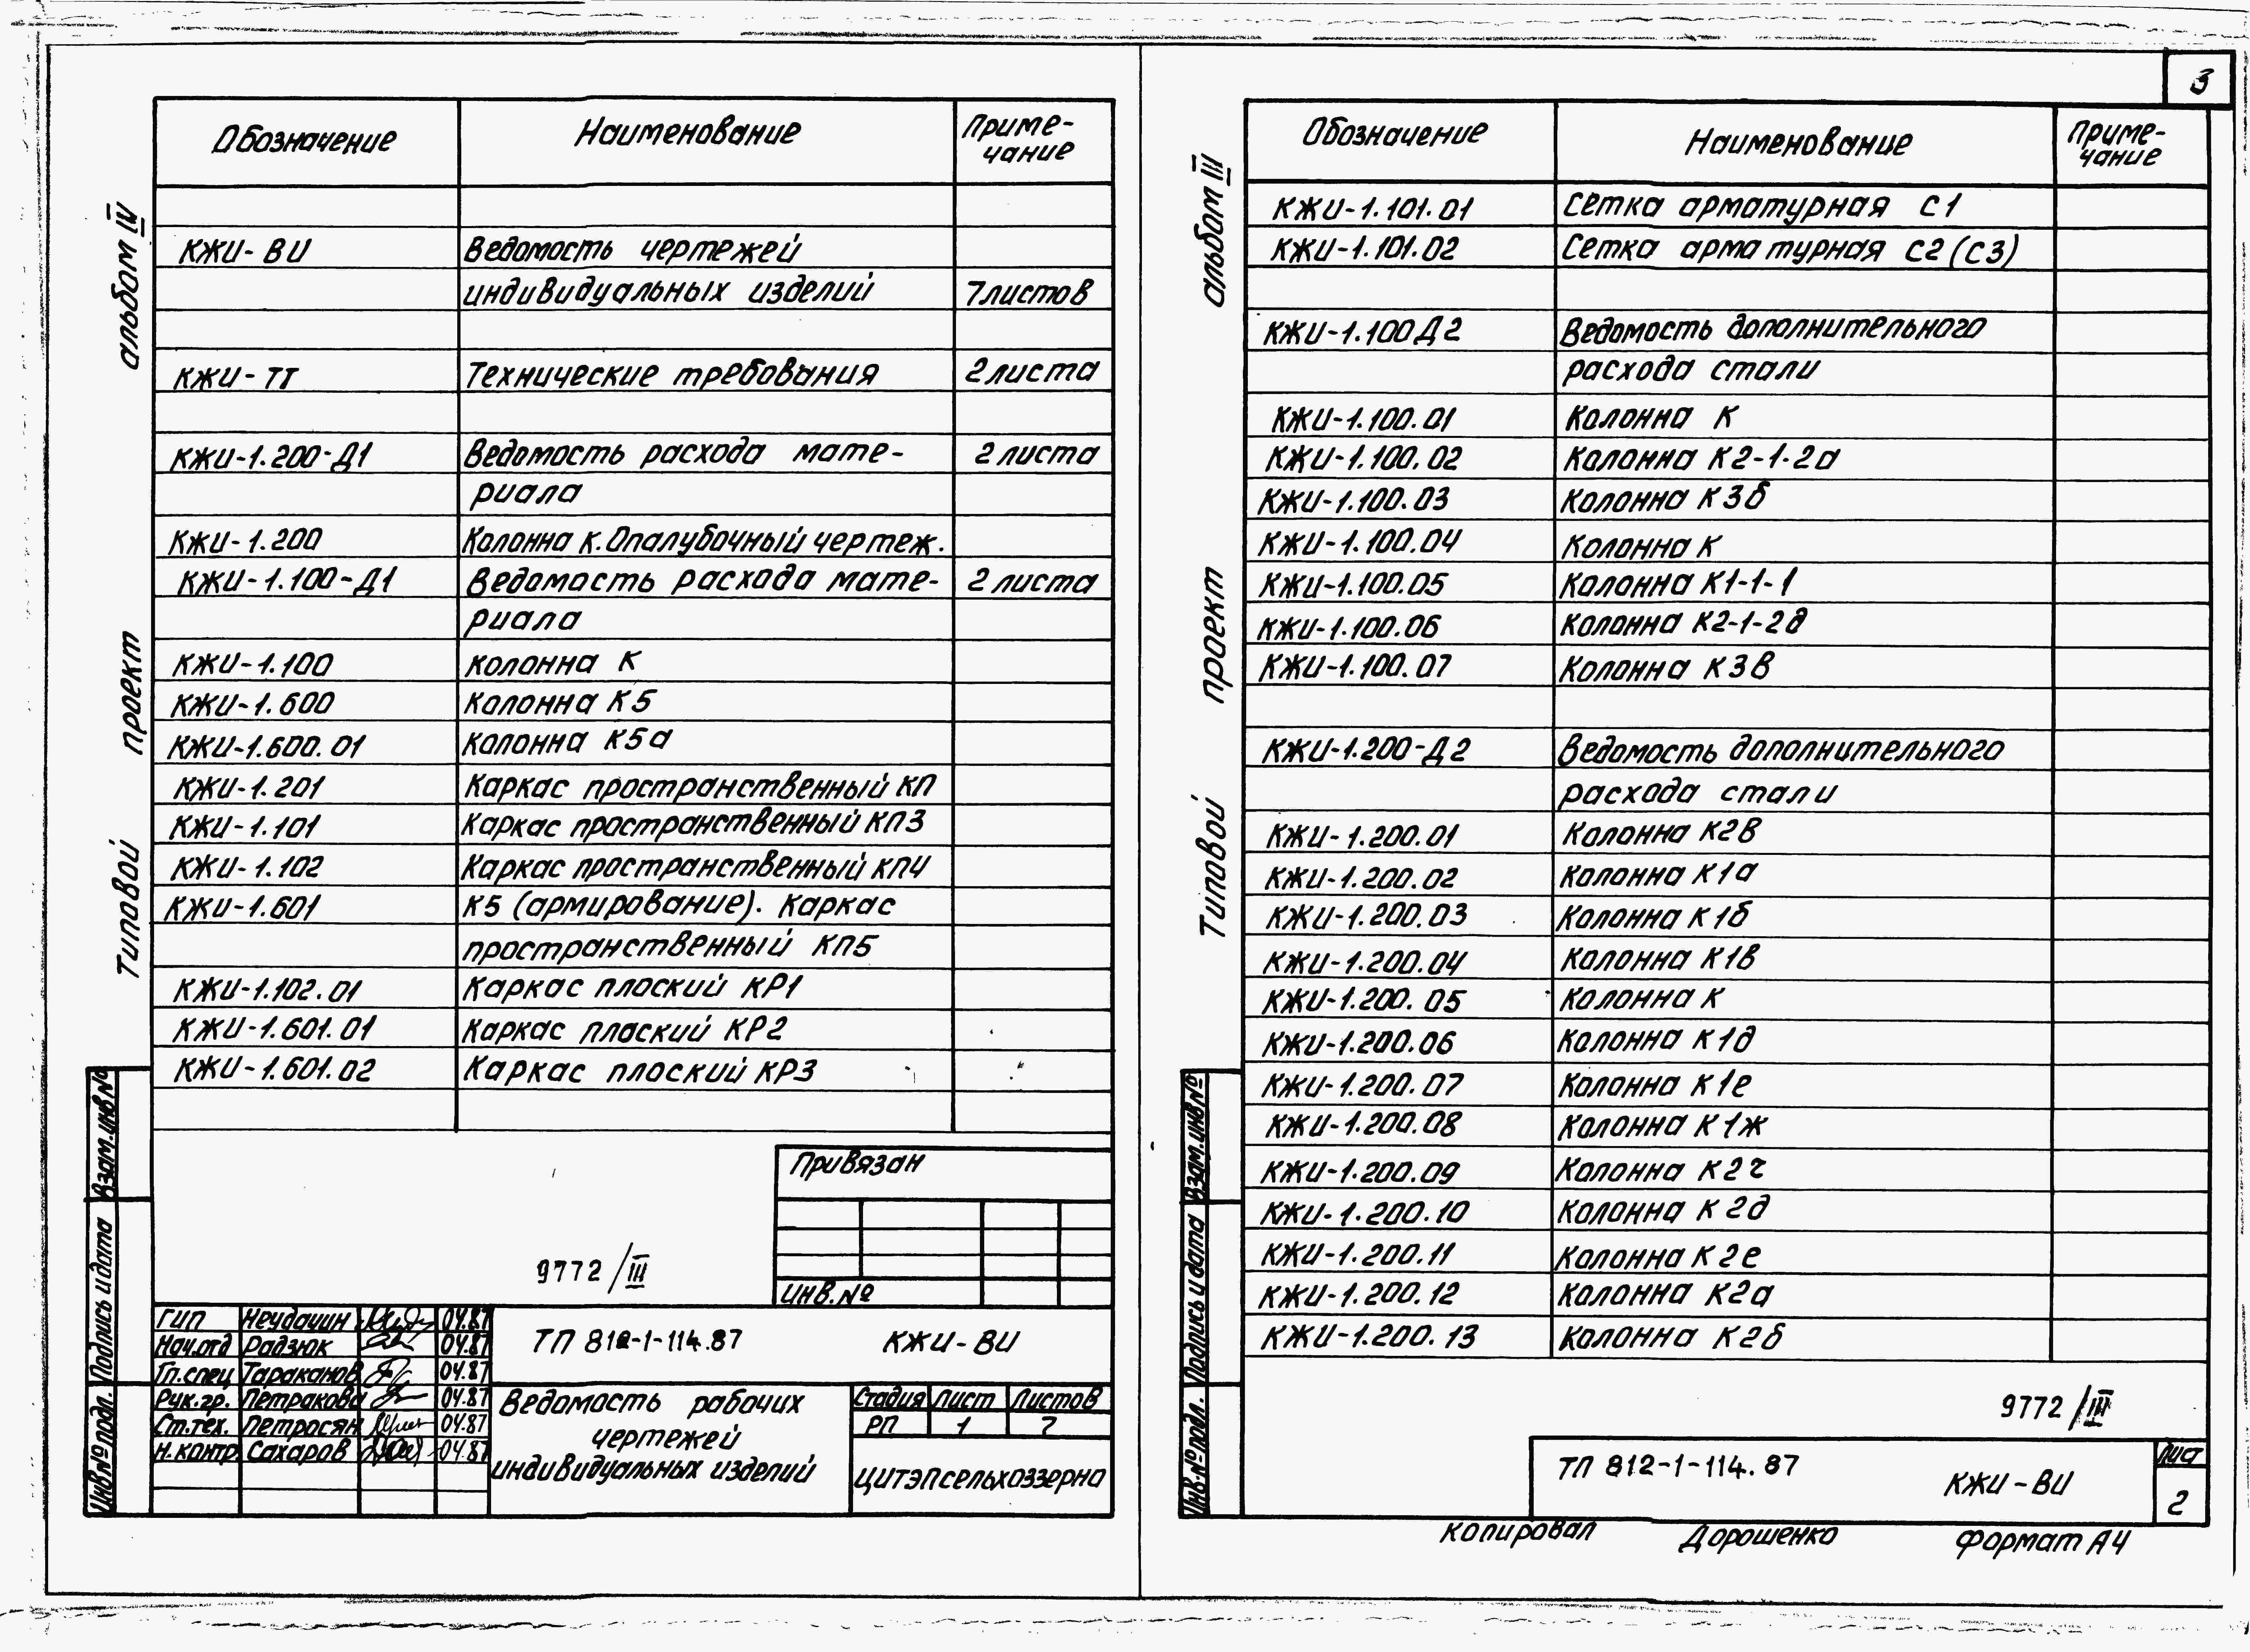 3
альбом IV
проект
Типовой
Обозначение Наименование Приме-
чание
КЖИ-ВИ Ведомость чертежей
индивидуальных изделий 7 листов
КЖИ-ТТ Технические требования 2 листа
КЖИ-1.200-Д1 Ведомость расхода мате- 2 листа
риала
КЖИ-1.200 Колонна К. Опалубочный чертеж.
КЖИ-1.100-Д1 Ведомость расхода мате- 2 листа
риала
КЖИ-1.100 колонна К
КЖИ-1.600 Колонна К5
КЖИ-1.600.01 Колонна К5а
КЖИ-1.201 Каркас пространственный КП
КЖИ-1.101 Каркас пространственный КП3
КЖИ-1.102 Каркас пространственный КП4
КЖИ-1.601 К5 (армирование). Каркас
пространственный КП5
КЖИ-1.102.01 Каркас плоский КР1
КЖИ-1.601.01 Каркас плоский КР2
КЖИ-1.601.02 Каркас плоский КР3
Привязан
Инв.№
9772/III
Взам.инв№
Подпись и дата
Инв№подл.
ГИП Неудачин 04.87
Нач.отд Радзюк 04.87
Гл.спец Тараканов 04.87
Рук.гр. Петракова 04.87
Ст.тех. Петросян 04.87
Н.контр. Сахаров 04.87
ТП 812-1-114.87 КЖИ-ВИ
Ведомость рабочих
чертежей
индивидуальных изделий
Стадия Лист Листов
РП 1 7
ЦИТЭПсельхоззерно
альбом III
проект
Типовой
Обозначение Наименование Приме-
чание
КЖИ-1.101.01 Сетка арматурная С1
КЖИ-1.101.02 Сетка арматурная С2 (С3)
КЖИ-1.100Д2 Ведомость дополнительного
расхода стали
КЖИ-1.100.01 Колонна К
КЖИ-1.100.02 Колонна К2-1-2а
КЖИ-1.100.03 Колонна К3б
КЖИ-1.100.04 Колонна К
КЖИ-1.100.05 Колонна К1-1-1
КЖИ-1.100.06 Колонна К2-1-2д
КЖИ-1.100.07 Колонна К3в
КЖИ-1.200-Д2 Ведомость дополнительного
расхода стали
КЖИ-1.200.01 Колонна К2в
КЖИ-1.200.02 Колонна К1а
КЖИ-1.200.03 Колонна К1б
КЖИ-1.200.04 Колонна К1в
КЖИ-1.200.05 Колонна К
КЖИ-1.200.06 Колонна К1д
КЖИ-1.200.07 Колонна К1е
КЖИ-1.200.08 Колонна К1ж
КЖИ-1.200.09 Колонна К2г
КЖИ-1.200.10 Колонна К2д
КЖИ-1.200.11 Колонна К2е
КЖИ-1.200.12 Колонна К2а
КЖИ-1.200.13 Колонна К2б
Взам.инв№
Подпись и дата
Инв.№подл.
9772/III
ТП 812-1-114.87 КЖИ-ВИ
Лист
2
Копировал Дорошенко Формат А4